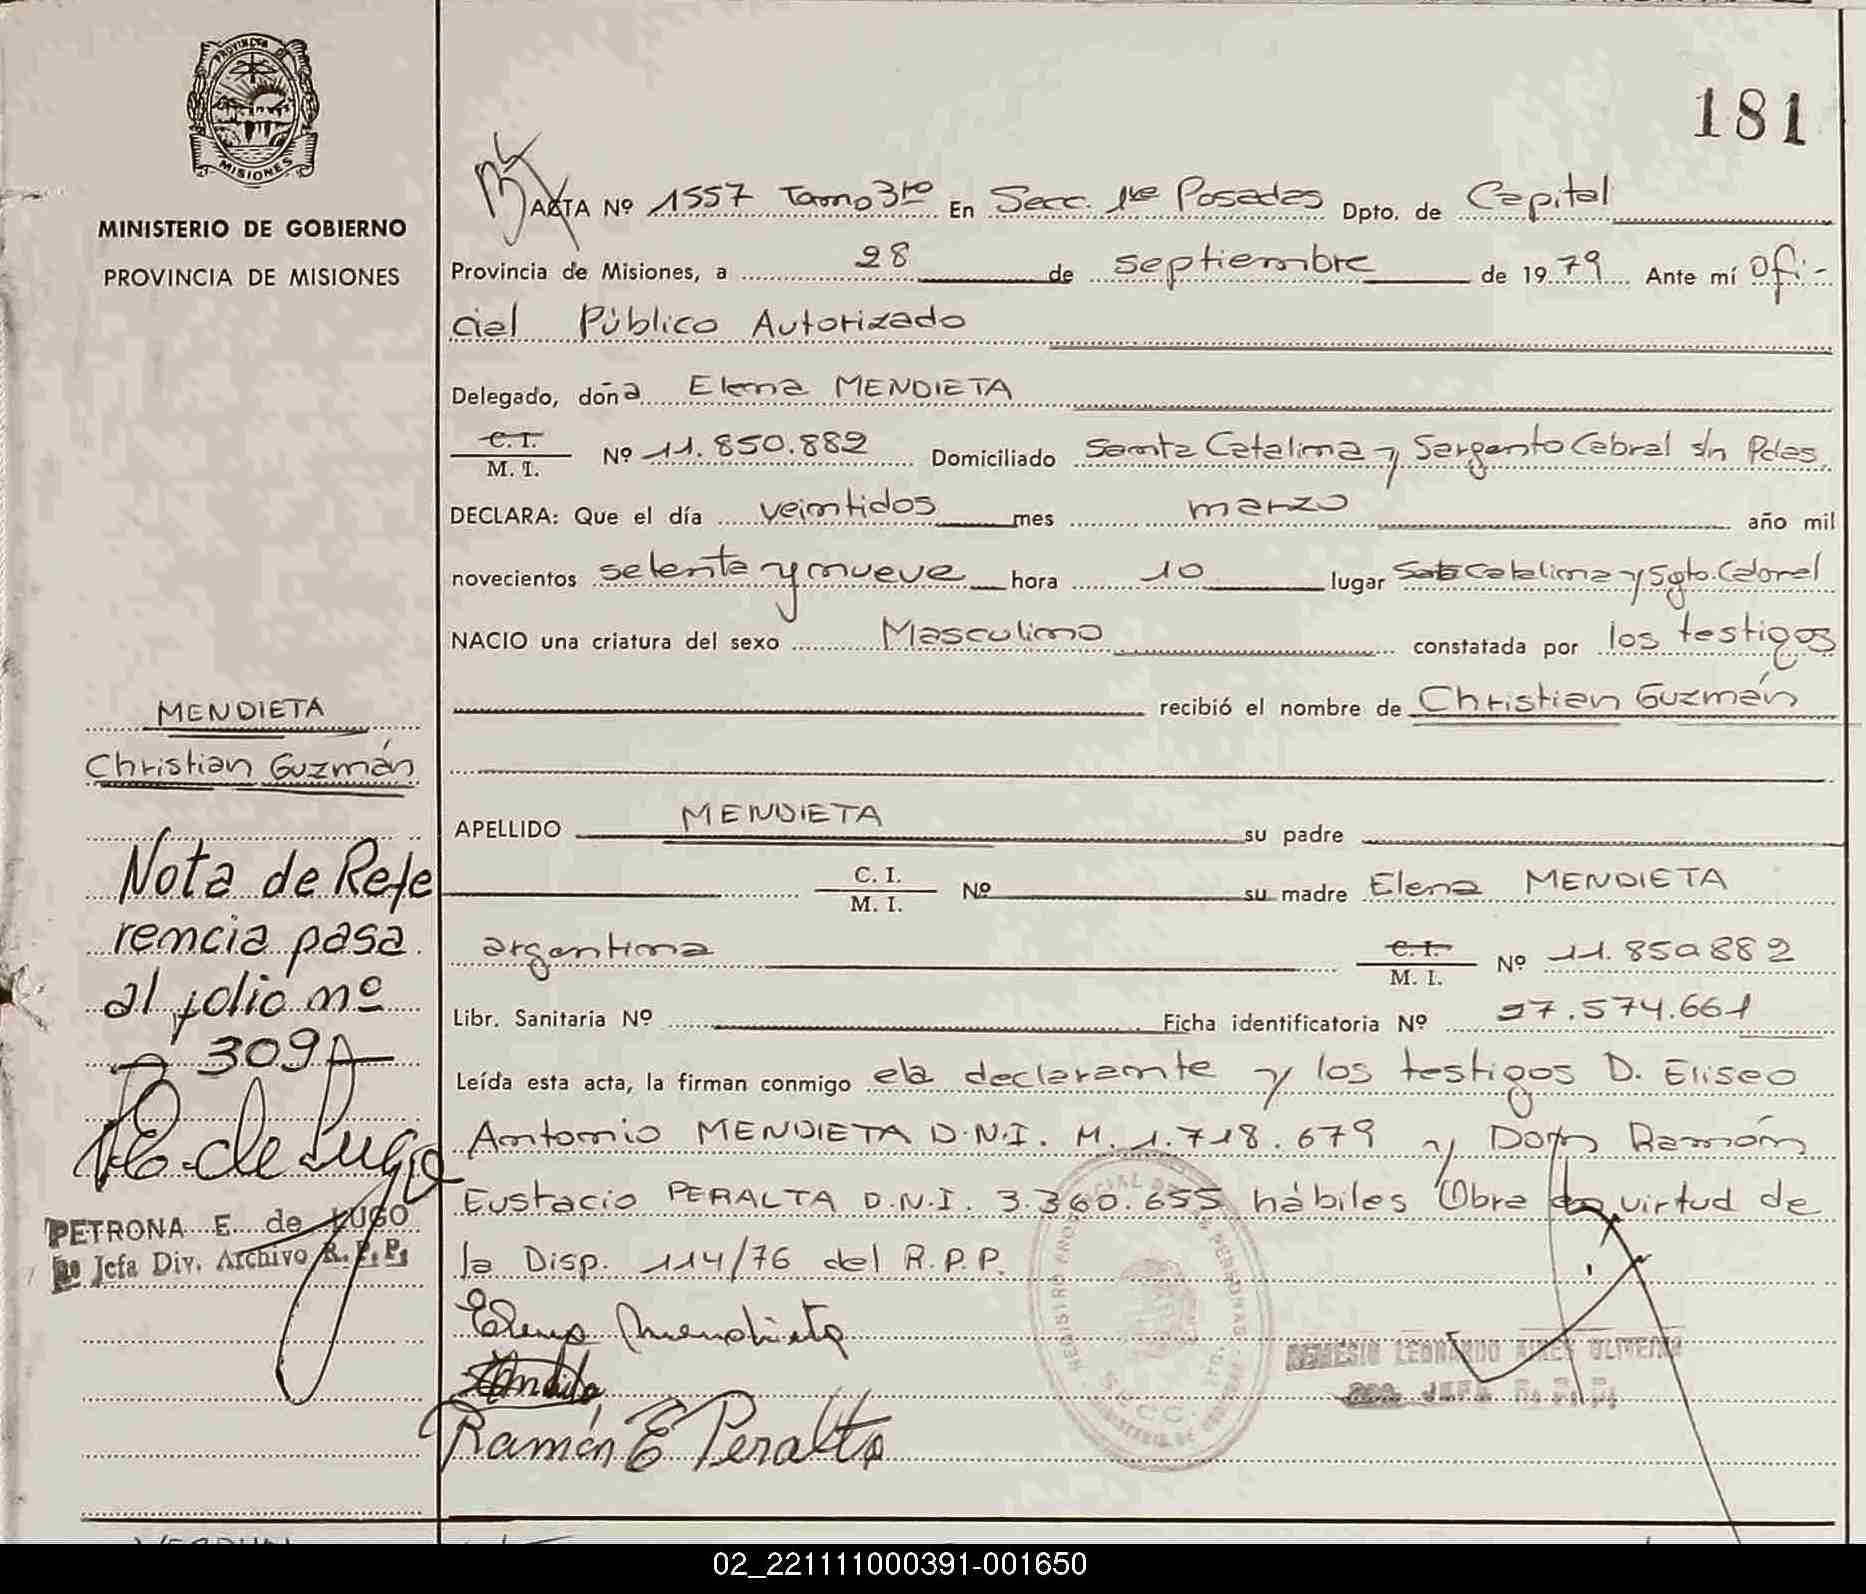 PROVINCIA DE
MISIONES
MINISTERIO DE GOBIERNO
PROVINCIA DE MISIONES
MENDIETA
Christian Guzmán
Nota de Refe
rencia pasa
al folio nº
309A
PETRONA E. de LUGO
Jefa Div. Archivo R. P. P.
181
ACTA Nº 1557 Tomo 3ro En Secc. 1ra Posadas Dpto. de Capital
Provincia de Misiones, a 28 de septiembre de 1979 Ante mí Ofi-
cial Público Autorizado
Delegado, doña Elena MENDIETA
C. I.
M. I. Nº 11.850.882 Domiciliado Santa Catalina y Sargento Cabral s/n Pdas.
DECLARA: Que el día veintidos mes marzo año mil
novecientos setenta y nueve hora 10 lugar Sta Catalina y Sgto. Cabral
NACIO una criatura del sexo Masculino constatada por los testigos
recibió el nombre de Christian Guzmán
APELLIDO MENDIETA su padre
C. I.
M. I. Nº su madre Elena MENDIETA
argentina C. I.
M. I. Nº 11.850.882
Libr. Sanitaria Nº Ficha identificatoria Nº 27.574.661
Leída esta acta, la firman conmigo ela declarante y los testigos D. Eliseo
Antonio MENDIETA D.N.I. M. 1.718.679 y Don Ramón
Eustacio PERALTA D.N.I. 3.360.655 hábiles Obra en virtud de
la Disp. 114/76 del R.P.P.
Elena Mendieta
Ramón E Peralta
LEONARDO AIRES OLIVEIRA
JEFE R. P. P.
02_221111000391-001650